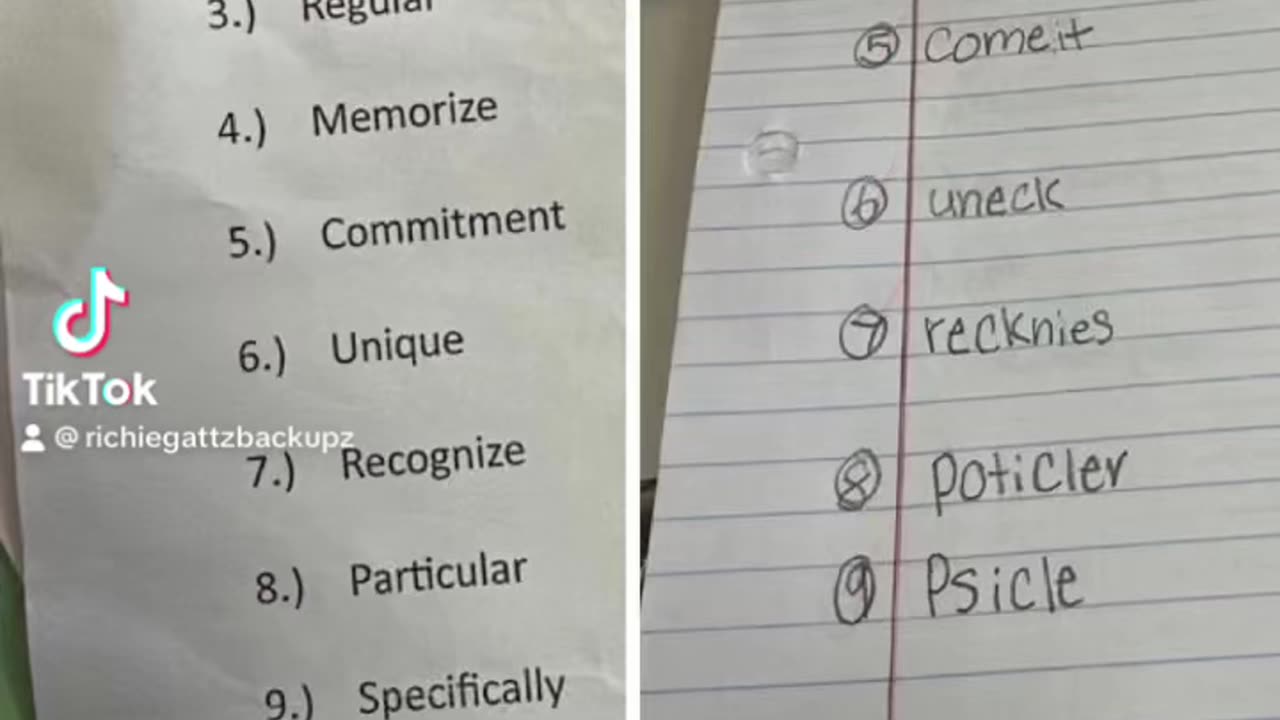 3.) Regular
4.) Memorize
5.) Commitment
6.) Unique
7.) Recognize
8.) Particular
9.) Specifically
TikTok
@richiegattzbackupz
5 comeit
6 uneck
7 recknies
8 poticler
9 Psicle